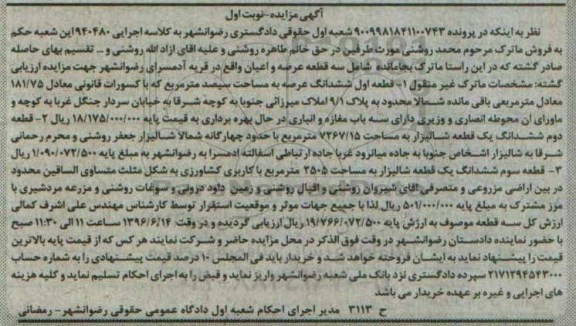 آگهی مزایده-نوبت اول
نظر به اینکه در پرونده ۹۰۰۹۹۸۱۸۴۱۱۰۰۷۴۳ شعبه اول حقوقی دادگستری رضوانشهر به کلاسه اجرایی ۹۴۰۴۸۰ این شعبه حکم
به فروش ماترک مرحوم محمد روشنی مورث طرفین در حق خانم طاهره روشنی و علیه اقای ازاد الله روشنی و ... تقسیم بهای حاصله
صادر گشته که در این راستا ماترک بجامانده شامل سه قطعه عرصه و اعیان واقع در قریه آدمسرای رضوانشهر جهت مزایده ارزیابی
گشته: مشخصات ماترک غیر منقول ۱- قطعه اول ششدانگ عرصه به مساحت سیصد مترمربع که با کسورات قانونی معادل ۱۸۱/۷۵
معادل مترمربعی باقی مانده شمالا محدود به پلاک ۹/۱ املاک میرزائی جنوبا به کوچه شرقا به خیابان سردار جنگل غربا به کوچه و
ماورای ان محوطه انصاری و وزیری دارای سه باب مغازه و انباری در حال بهره برداری به قیمت پایه ۱۸/۱۷۵/۰۰۰/۰۰۰ ریال ۲- قطعه
دوم ششدانگ یک قطعه شالیزار به مساحت ۷۲۶۷/۱۵ مترمربع با حدود چهارگانه شمالا شالیزار جعفر روشنی و محرم رحمانی
شرقا به شالیزار اشخاص جنوبا به جاده میانرود غربا جاده ارتباطی اسفالته ادمسرا به رضوانشهر به مبلغ پایه ۱/۰۹۰/۰۷۲/۵۰۰ ریال
۳- قطعه سوم ششدانگ یک قطعه شالیزار به مساحت ۲۵۰۵ مترمربع با کاربری کشاورزی به شکل مثلث متساوی الساقین محدود
در بین اراضی مزروعی و متصرفی اقای شیروان روشنی و اقبال روشنی و زمین داود درونی و سوغات روشنی و مزرعه مردشیری با
مرز مشترک به مبلغ پایه ۵۰۱/۰۰۰/۰۰۰ ریال لذا با جمیع جهات موثر و موقعیت استقرار توسط کارشناس مهندس علی اشرف کمالی
ارزش کل سه قطعه موصوف به ارزش پایه ۱۹/۷۶۶/۰۷۲/۵۰۰ ریال ارزیابی گردیده و در وقت ۱۳۹۶/۶/۱۴ ساعت ۱۱ الی ۱۱:۳۰ صبح
با حضور نماینده دادستان رضوانشهر در وقت فوق الذکر در محل مزایده حاضر و شرکت نمایند هر کس که از قیمت پایه بالاترین
قیمت را پیشنهاد نماید به ایشان فروخته خواهد شد و خریدار باید فی المجلس ۱۰ درصد قیمت پیشنهادی را به شماره حساب
۲۱۷۱۲۹۴۵۴۳۰۰۰ سپرده دادگستری نزد بانک ملی شعبه رضوانشهر واریز نماید و قبض را به اجرای احکام تسلیم نماید و کلیه هزینه
های اجرایی و غیره بر عهده خریدار می باشد
ح ۳۱۱۳ مدیر اجرای احکام شعبه اول دادگاه عمومی حقوقی رضوانشهر- رمضانی